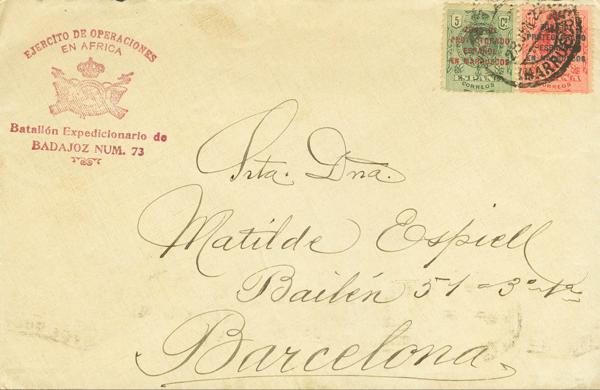 EJERCITO DE OPERACIONES
EN AFRICA
Batallón Expedicionario de
BADAJOZ NUM. 73
5 Cs
ZONA DE
PROTECTORADO
ESPAÑOL
EN MARRUECOS
CORREOS
CORREOS
Srta. Dña.
Matilde Espiell
Bailén 51-3º-1ª
Barcelona.